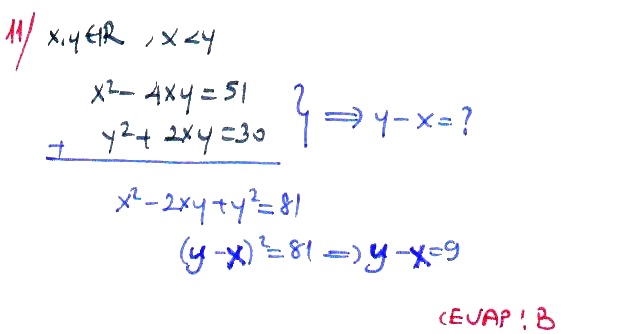 11/ x,y ∈ IR , x<y
x² - 4xy = 51
y² + 2xy = 30 } ⟹ y - x = ?
+
x² - 2xy + y² = 81
(y - x)² = 81 ⟹ y - x = 9
CEVAP : B